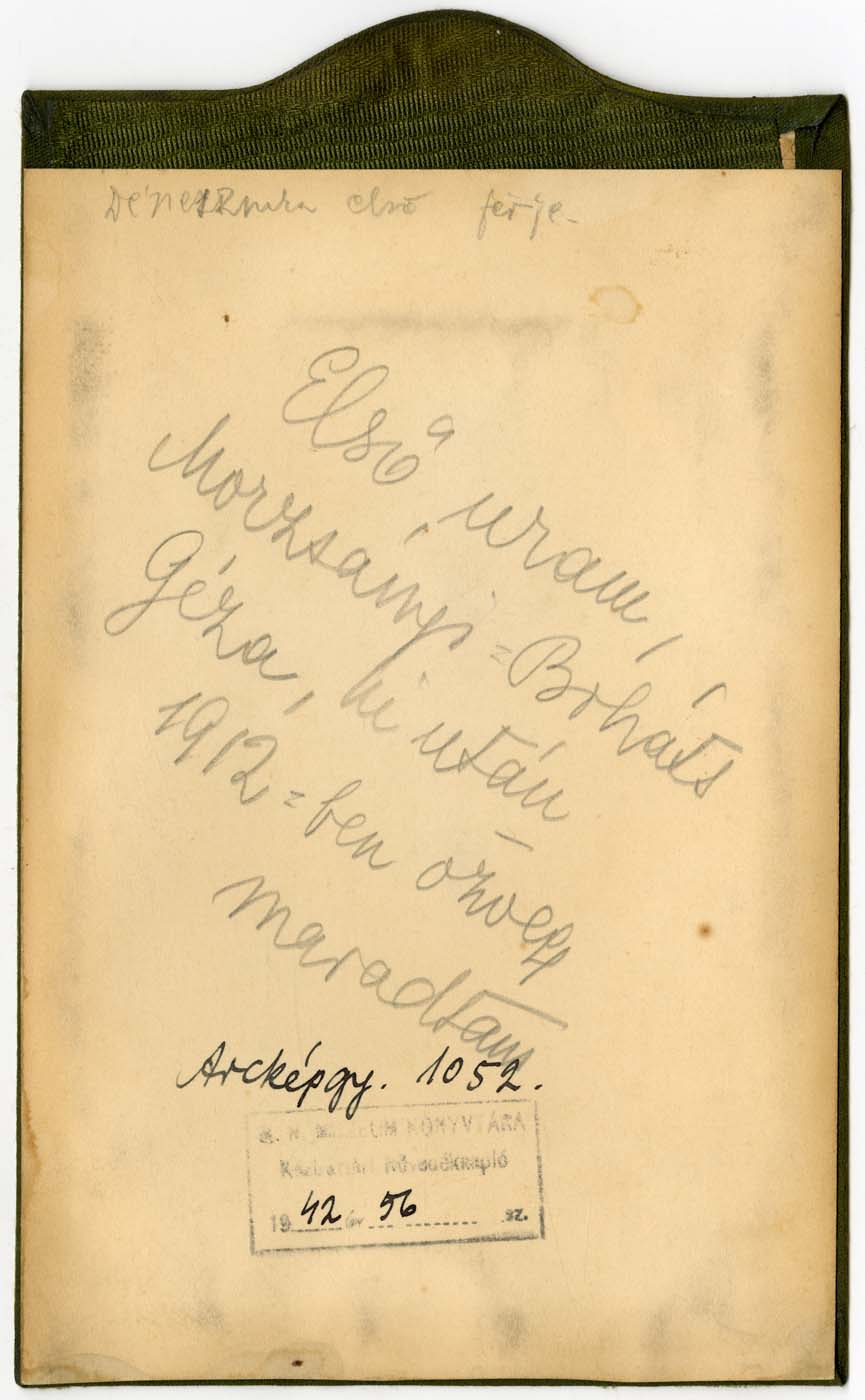 első férje.
Első a uram,
Morzsányi=Boháts
Géza, ki után
1912=ben özvegy
maradtam
Arcképgy. 1052.
M. N. MUZEUM KÖNYVTÁRA
növedéknapló
1942 év 56 sz.